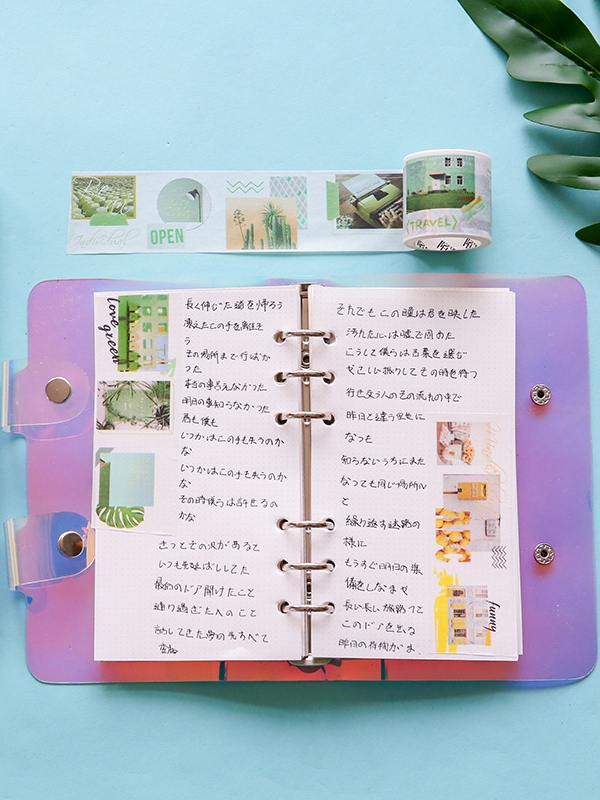 Individual
OPEN
TRAVEL
Love green
長く伸びた道を帰ろう
凍えたこの手を離そ
う
その場所まで行けなか
った
本当の事言えなかった
明日の事知らなかった
君も僕も
いつかはこの手も失うのか
な
いつかはこの手も失うのか
な
その時僕らは許せるの
かな
きっとその次があると
いつも先延ばししてた
最初のドア開けたこと
通り過ぎた人のこと
それでもこの瞳は君を映した
汚れた心は嘘で固めた
こうして僕らは言葉を選び
行き交う人のその流れの中で
昨日と違う空気に
なっても
知らないうちにまた
なっても同じ場所へ
と
繰り返す迷路の
様に
もうすぐ明日の準
備をしなきゃ
長い長い旅路へ
このドアを出る
昨日の荷物がま
funny